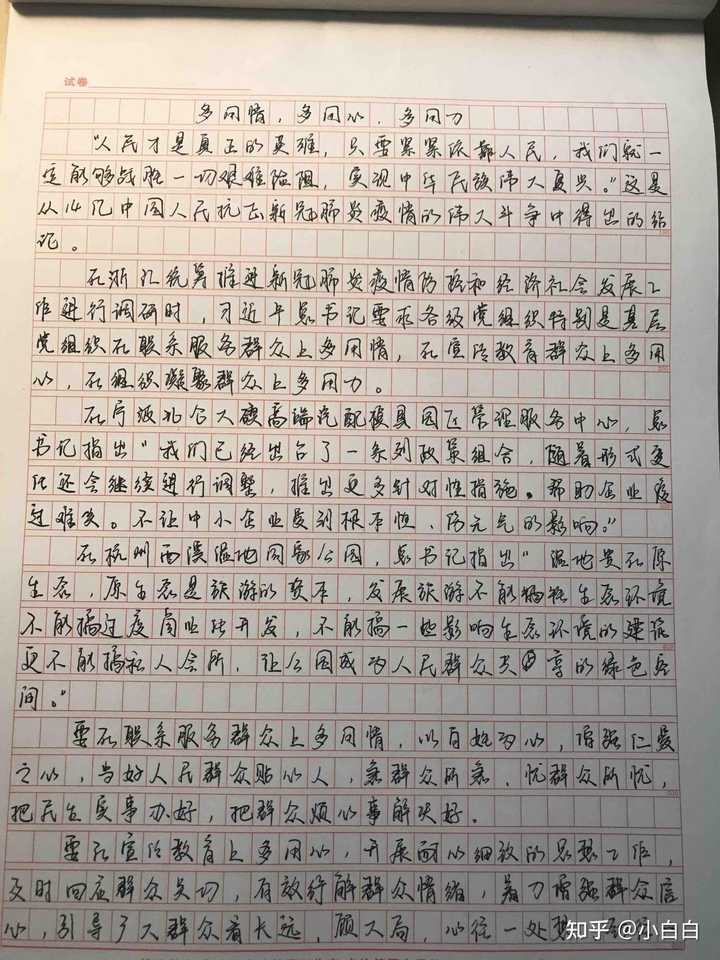 试卷
多用情，多用心，多用力
"人民才是真正的英雄，只要紧紧依靠人民，我们就一
定能够战胜一切艰难险阻，实现中华民族伟大复兴。"这是
从14亿中国人民抗击新冠肺炎疫情的伟大斗争中得出的结
论。
在浙江统筹推进新冠肺炎疫情防控和经济社会发展工
作进行调研时，习近平总书记要求各级党组织特别是基层
党组织在联系服务群众上多用情，在宣传教育群众上多用
心，在组织凝聚群众上多用力。
在宁波北仑大碶高端汽配模具园区管理服务中心，总
书记指出"我们已经出台了一系列政策组合，随着形式变
化还会继续进行调整，推出更多针对性措施。帮助企业度
过难关。不让中小企业受到根本性、伤元气的影响。"
在杭州西溪湿地国家公园，总书记指出"湿地贵在原
生态，原生态是旅游的资本，发展旅游不能牺牲生态环境
不能搞过度商业化开发，不能搞一些影响生态环境的建筑
更不能搞私人会所，让公园成为人民群众共享的绿色空
间。"
要在联系服务群众上多用情，以百姓为心，增强仁爱
之心，当好人民群众贴心人，急群众所急，忧群众所忧，
把民生实事办好，把群众烦心事解决好。
要在宣传教育上多用心，开展耐心细致的思想工作，
及时回应群众关切，有效纾解群众情绪，着力增强群众信
心，引导广大群众看长远，顾大局，心往一处想
知乎 @小白白